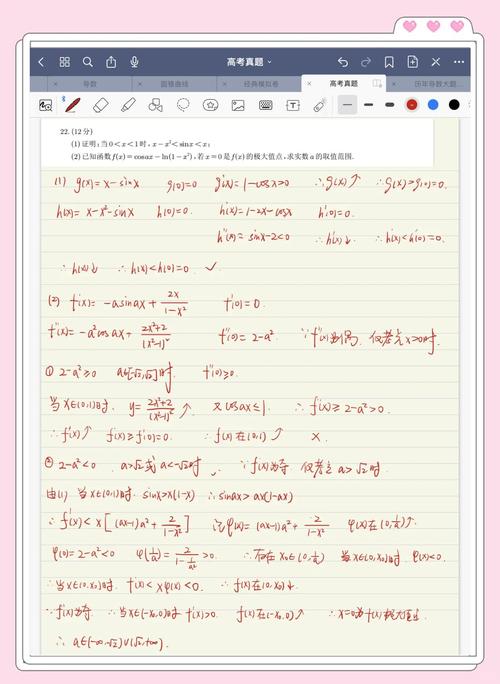 高考真题
导数
圆锥曲线
经典模拟卷
高考真题
历年导数大题...
22. (12分)
(1)证明:当0<x<1时, x-x²<sinx<x;
(2)已知函数f(x)=cosax-ln(1-x²),若x=0是f(x)的极大值点,求实数a的取值范围.
(1) g(x)=x-sinx g(0)=0 g'(x)=1-cosx>0 ∴g(x)↑ ∴g(x)>g(0)=0.
h(x)=x-x²-sinx h(0)=0. h'(x)=1-2x-cosx h'(0)=0.
h''(x)=sinx-2<0 ∴h'(x)↓ ∴h'(x)<h'(0)=0.
∴h(x)↓ ∴h(x)<h(0)=0 ✓
(2) f'(x)=-asinax+2x/(1-x²) f'(0)=0.
f''(x)=-a²cosax+(2x²+2)/(x²-1)² f''(0)=2-a² ∵f''(x)为偶,仅考虑x>0时.
① 2-a²≥0 a∈[-√2,√2]时 f''(0)≥0.
当x∈(0,1)时, y=(2x²+2)/(x²-1)²↑ 又cosax≤1 ∴f''(x)≥2-a²>0.
∴f'(x)↑ f'(x)≥f'(0)=0 ∴f(x)在(0,1)↑ ×.
② 2-a²<0. a>√2或a<-√2时, ∵f'(x)为奇 仅考虑a>√2时.
由(1) 当x∈(0,1)时. sinx>x(1-x) ∴sinax>ax(1-ax)
∴f'(x)<x[(ax-1)a²+2/(1-x²)] 记φ(x)=(ax-1)a²+2/(1-x²) φ(x)在(0,1/a)↑
φ(0)=2-a²<0 φ(1/a)=2/(1-1/a²)>0. ∴存在x₀∈(0,1/a) 当x∈(0,x₀)时 φ(x)<0.
∴当x∈(0,x₀)时. f'(x)<xφ(x)<0. ∴f(x)在(0,x₀)↓.
∵f'(x)为奇 ∴当x∈(-x₀,0)时 f'(x)>0. f(x)在(-x₀,0)↑ ∴x=0为f(x)极大值点
∴a∈(-∞,-√2)∪(√2,+∞).